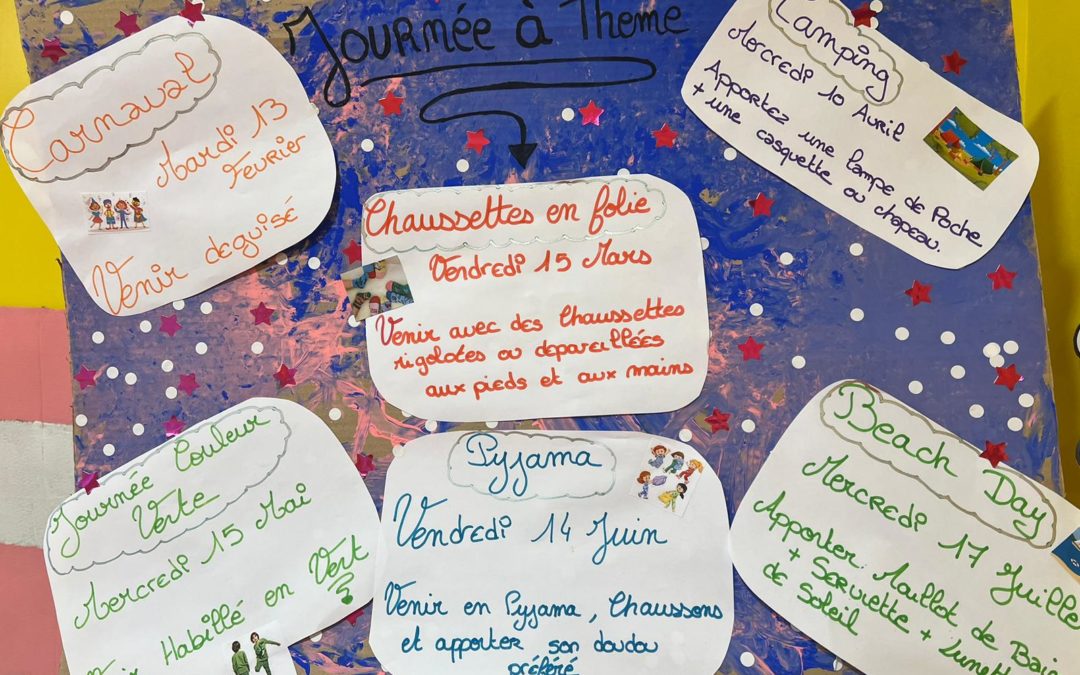 Journée à Theme
Carnaval
Mardi 13
Fevrier
Venir deguisé
Chaussettes en folie
Vendredi 15 Mars
Venir avec des Chaussettes
rigolotes ou depareillées
aux pieds et aux mains
Camping
Mercredi 10 Avril
Apportez une lampe de Poche
+ une casquette ou chapeau.
Journée Couleur
Verte
Mercredi 15 Mai
Habillé en Vert
Pyjama
Vendredi 14 Juin
Venir en Pyjama, Chaussons
et apporter son doudou
préféré
Beach Day
Mercredi 17 Juillet
Apporter Maillot de
+ Serviette +
de Soleil